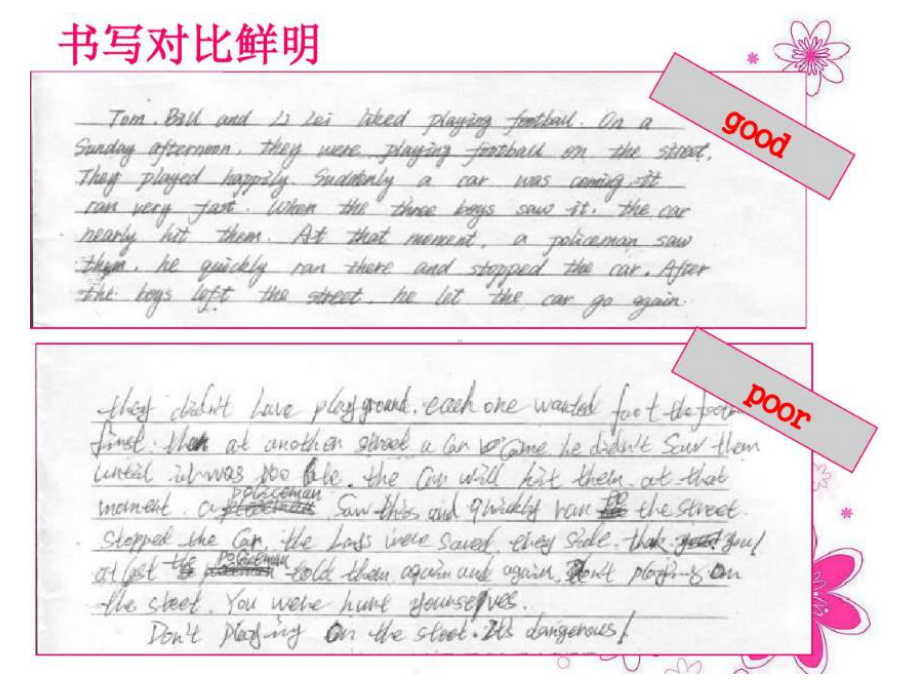 书写对比鲜明
good
Tom. Bill and Li Lei liked playing football. On a
Sunday afternoon, they were playing football on the street.
They played happily. Suddenly a car was coming. it
ran very fast. When the three boys saw it. the car
nearly hit them. At that moment, a policeman saw
them, he quickly ran there and stopped the car. After
the boys left the street, he let the car go again.
poor
they didn't have playground. each one wanted foot the
first. then at another street a car came he didn't saw them
until it was too late. the car will hit them. at that
moment. a policeman saw this and quickly ran to the street.
stopped the car. the boys were saved. they side. you!
at last the policeman told them again and again, Don't playing on
the steet. You were hunt yourselves.
Don't playing on the steet. It's dangerous!